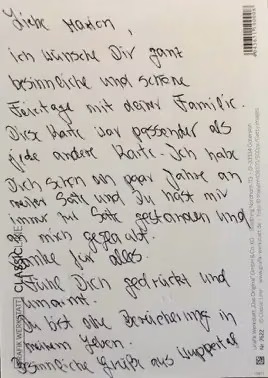 Liebe Marion,
ich wünsche Dir ganz
besinnliche und schöne
Feiertage mit deiner Familie.
Diese Karte war passender als
jede andere Karte. Ich habe
Dich schon ein paar Jahre an
meiner Seite und Du hast mir
immer zur Seite gestanden und
an mich geglaubt.
Danke für alles.
Fühle Dich gedrückt und
umarmt.
Du bist eine Bereicherung in
meinem Leben.
Besinnliche Grüße aus Wuppertal
GRAFIK WERKSTATT CLASSIC LINE